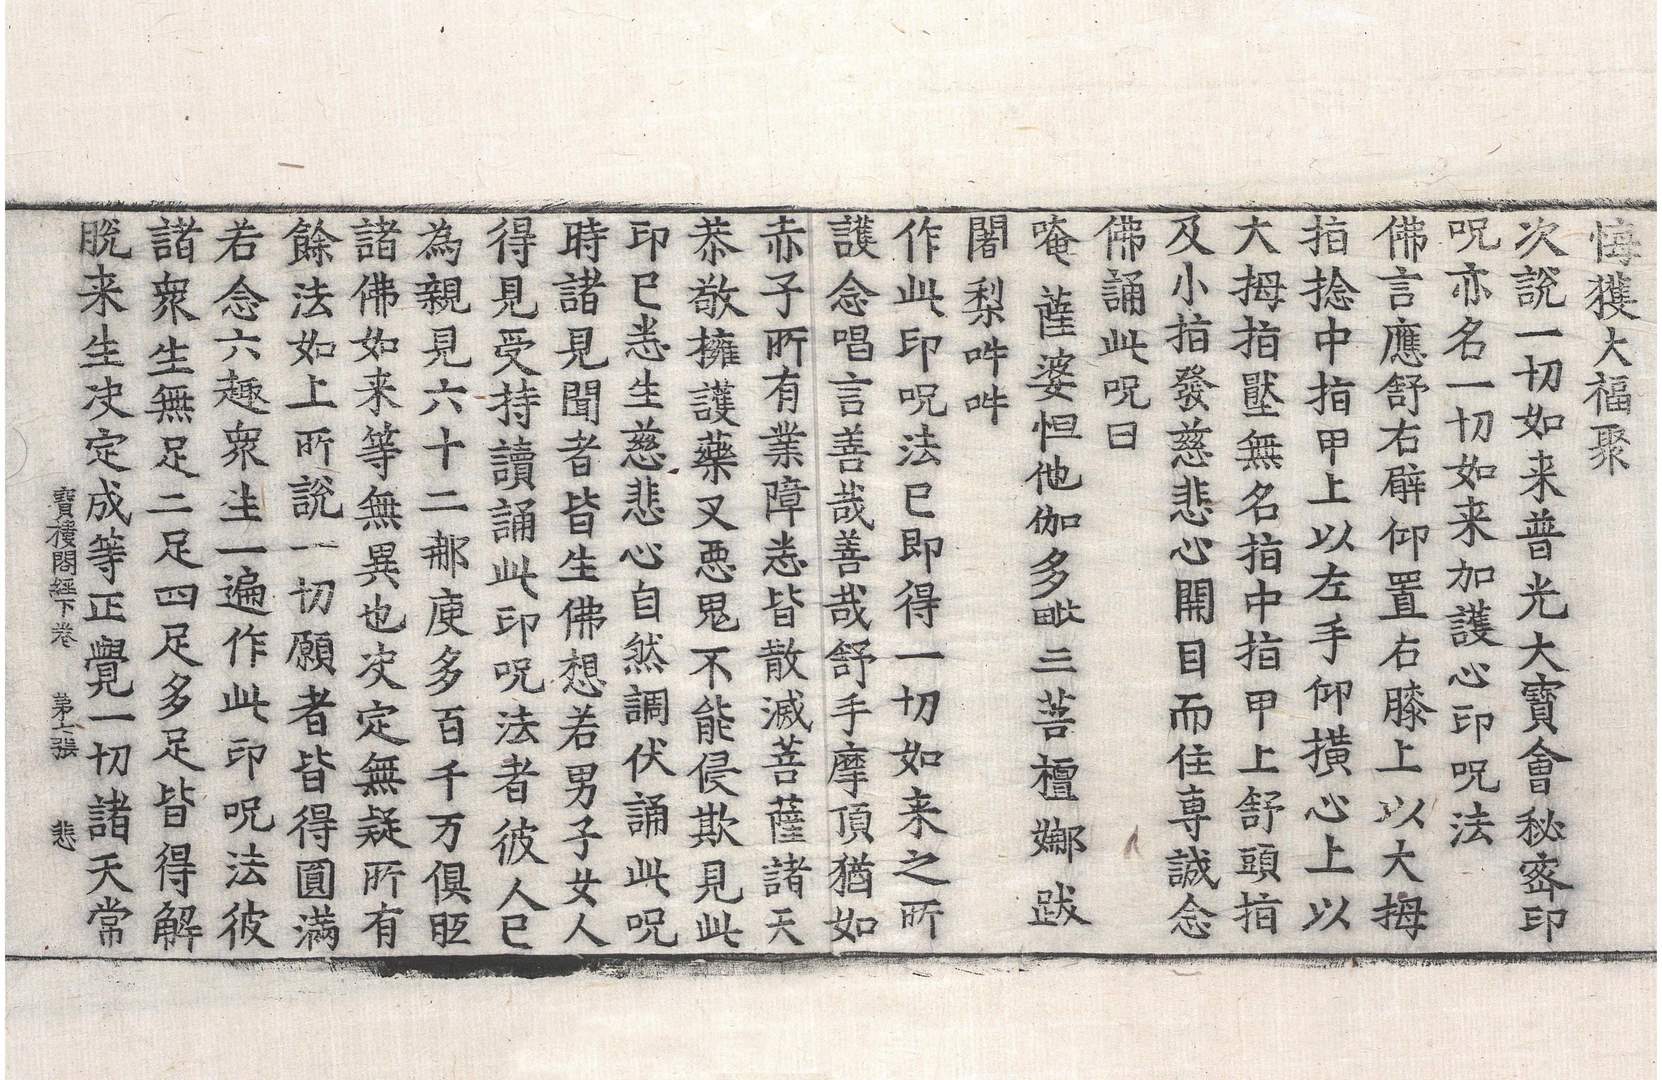 悔獲大福聚
次說一切如来普光大寶會秘密印
呪亦名一切如来加護心印呪法
佛言應舒右臂仰置右膝上以大拇
指捻中指甲上以左手仰撗心上以
大拇指壓無名指中指甲上舒頭指
及小指發慈悲心開目而住専誠念
佛誦此呪曰
唵薩婆怛他伽多毗三菩檀娜跋
闍梨吽吽
作此印呪法已即得一切如来之所
護念唱言善哉善哉舒手摩頂猶如
赤子所有業障悉皆散滅菩薩諸天
恭敬擁護藥叉惡鬼不能侵欺見此
印已悉生慈悲心自然調伏誦此呪
時諸見聞者皆生佛想若男子女人
得見受持讀誦此印呪法者彼人已
為親見六十二那庾多百千万俱胝
諸佛如来等無異也决定無疑所有
餘法如上所說一切願者皆得圓滿
若念六趣衆生一遍作此印呪法彼
諸衆生無足二足四足多足皆得解
脱来生决定成等正覺一切諸天常
寶樓閣經下卷 第七張 悲